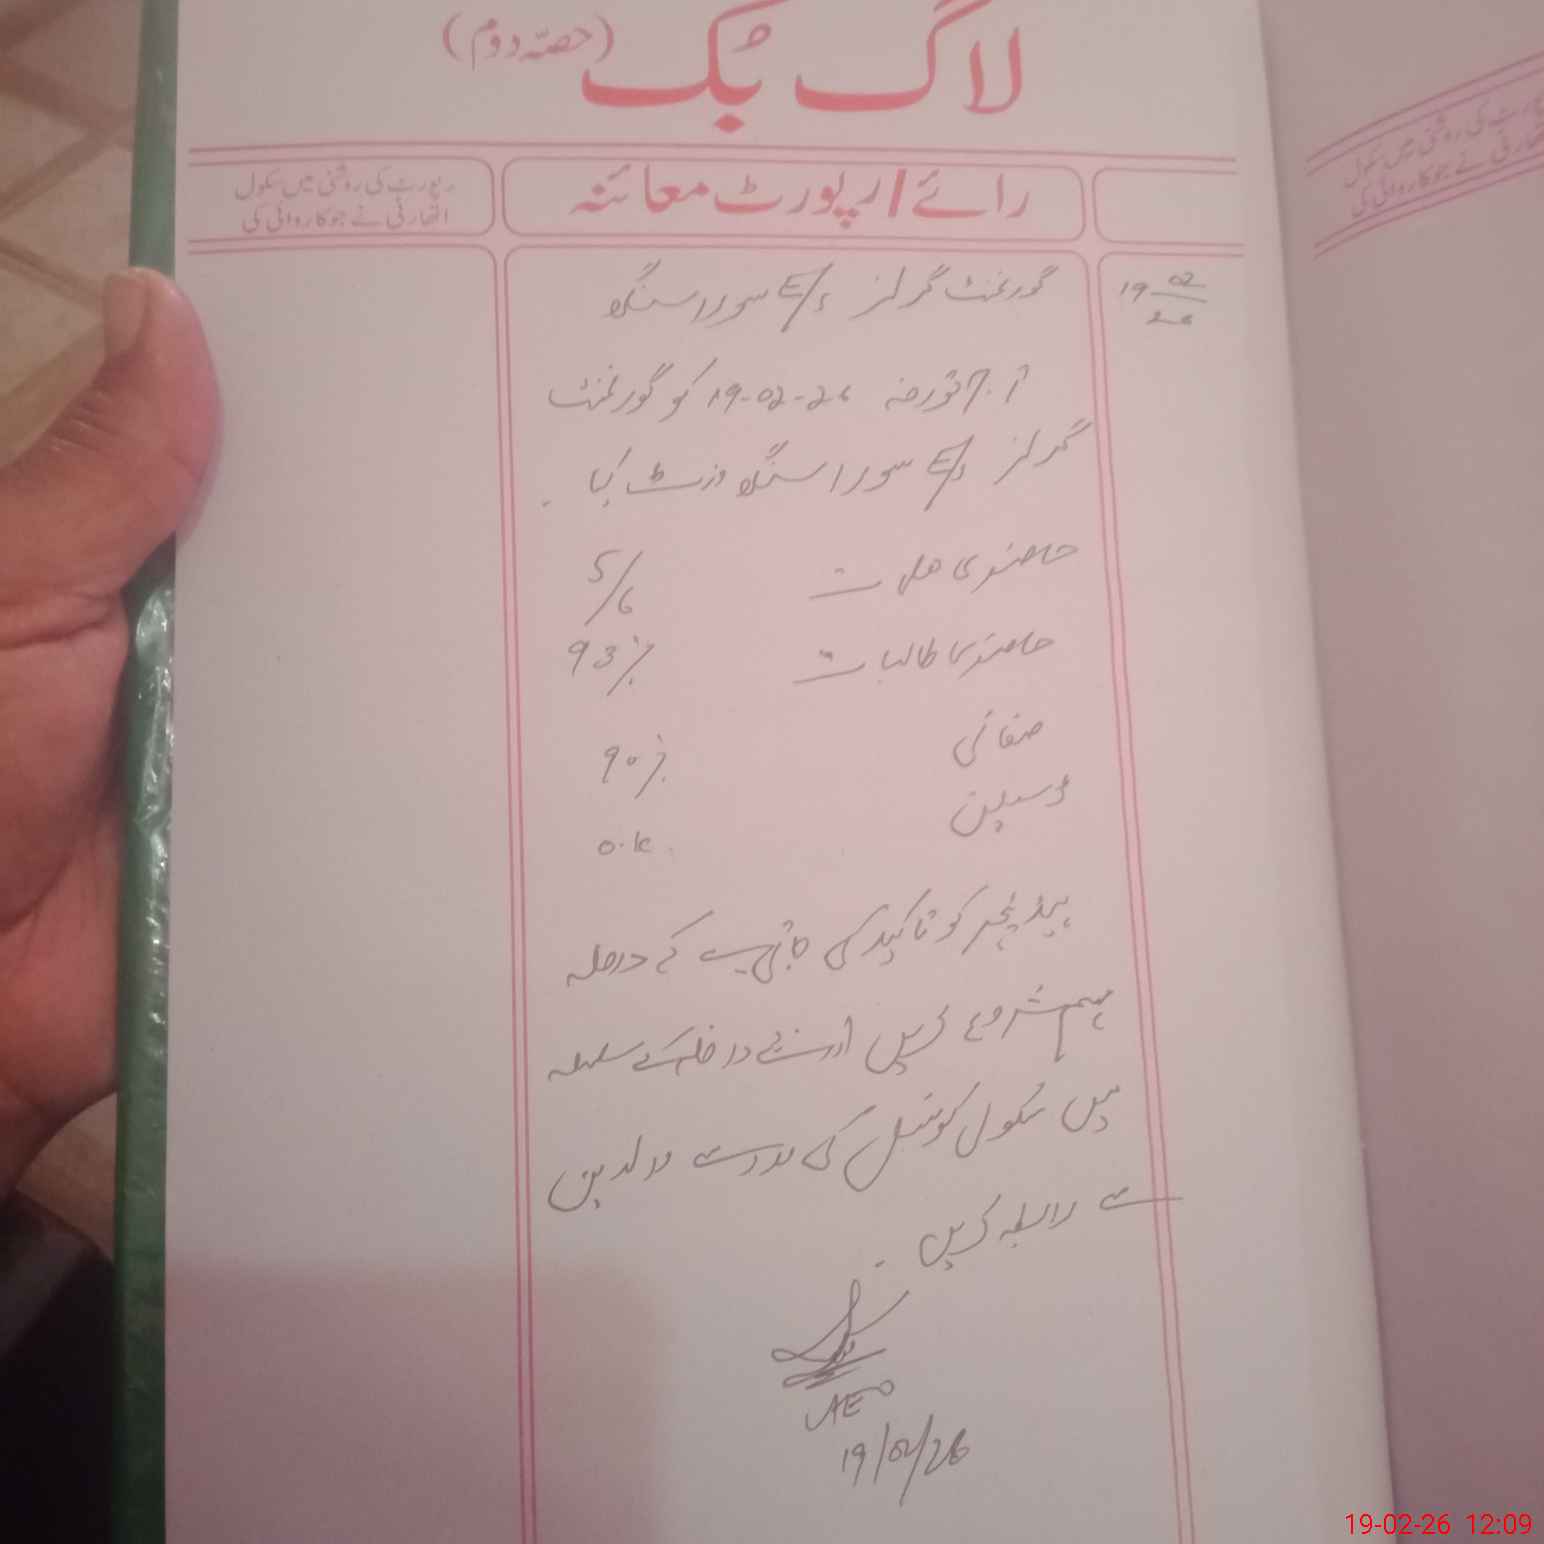 لاگ بُک (حصّہ دوم)
رائے / رپورٹ معائنہ
رپورٹ کی روشنی میں سکول
اتھارٹی نے جو کاروائی کی
19 02
26
گورنمنٹ گرلز E/S سوراسنگھ
آج مورخہ 19-02-26 کو گورنمنٹ
گرلز E/S سوراسنگھ وزٹ کیا ۔
حاضری معلمات 5/6
حاضری طالبات 93%
صفائی 90%
ڈسپلن O.K.
ہیڈ ٹیچر کو تاکید کی جاتی ہے کے داخلہ
مہم شروع کریں اور نئے داخلہ کے سلسلہ
میں سکول کونسل کی مدد سے والدین
سے رابطہ کریں ۔
AEO
19/02/26
رپورٹ کی روشنی میں سکول
اتھارٹی نے جو کاروائی کی
19-02-26 12:09